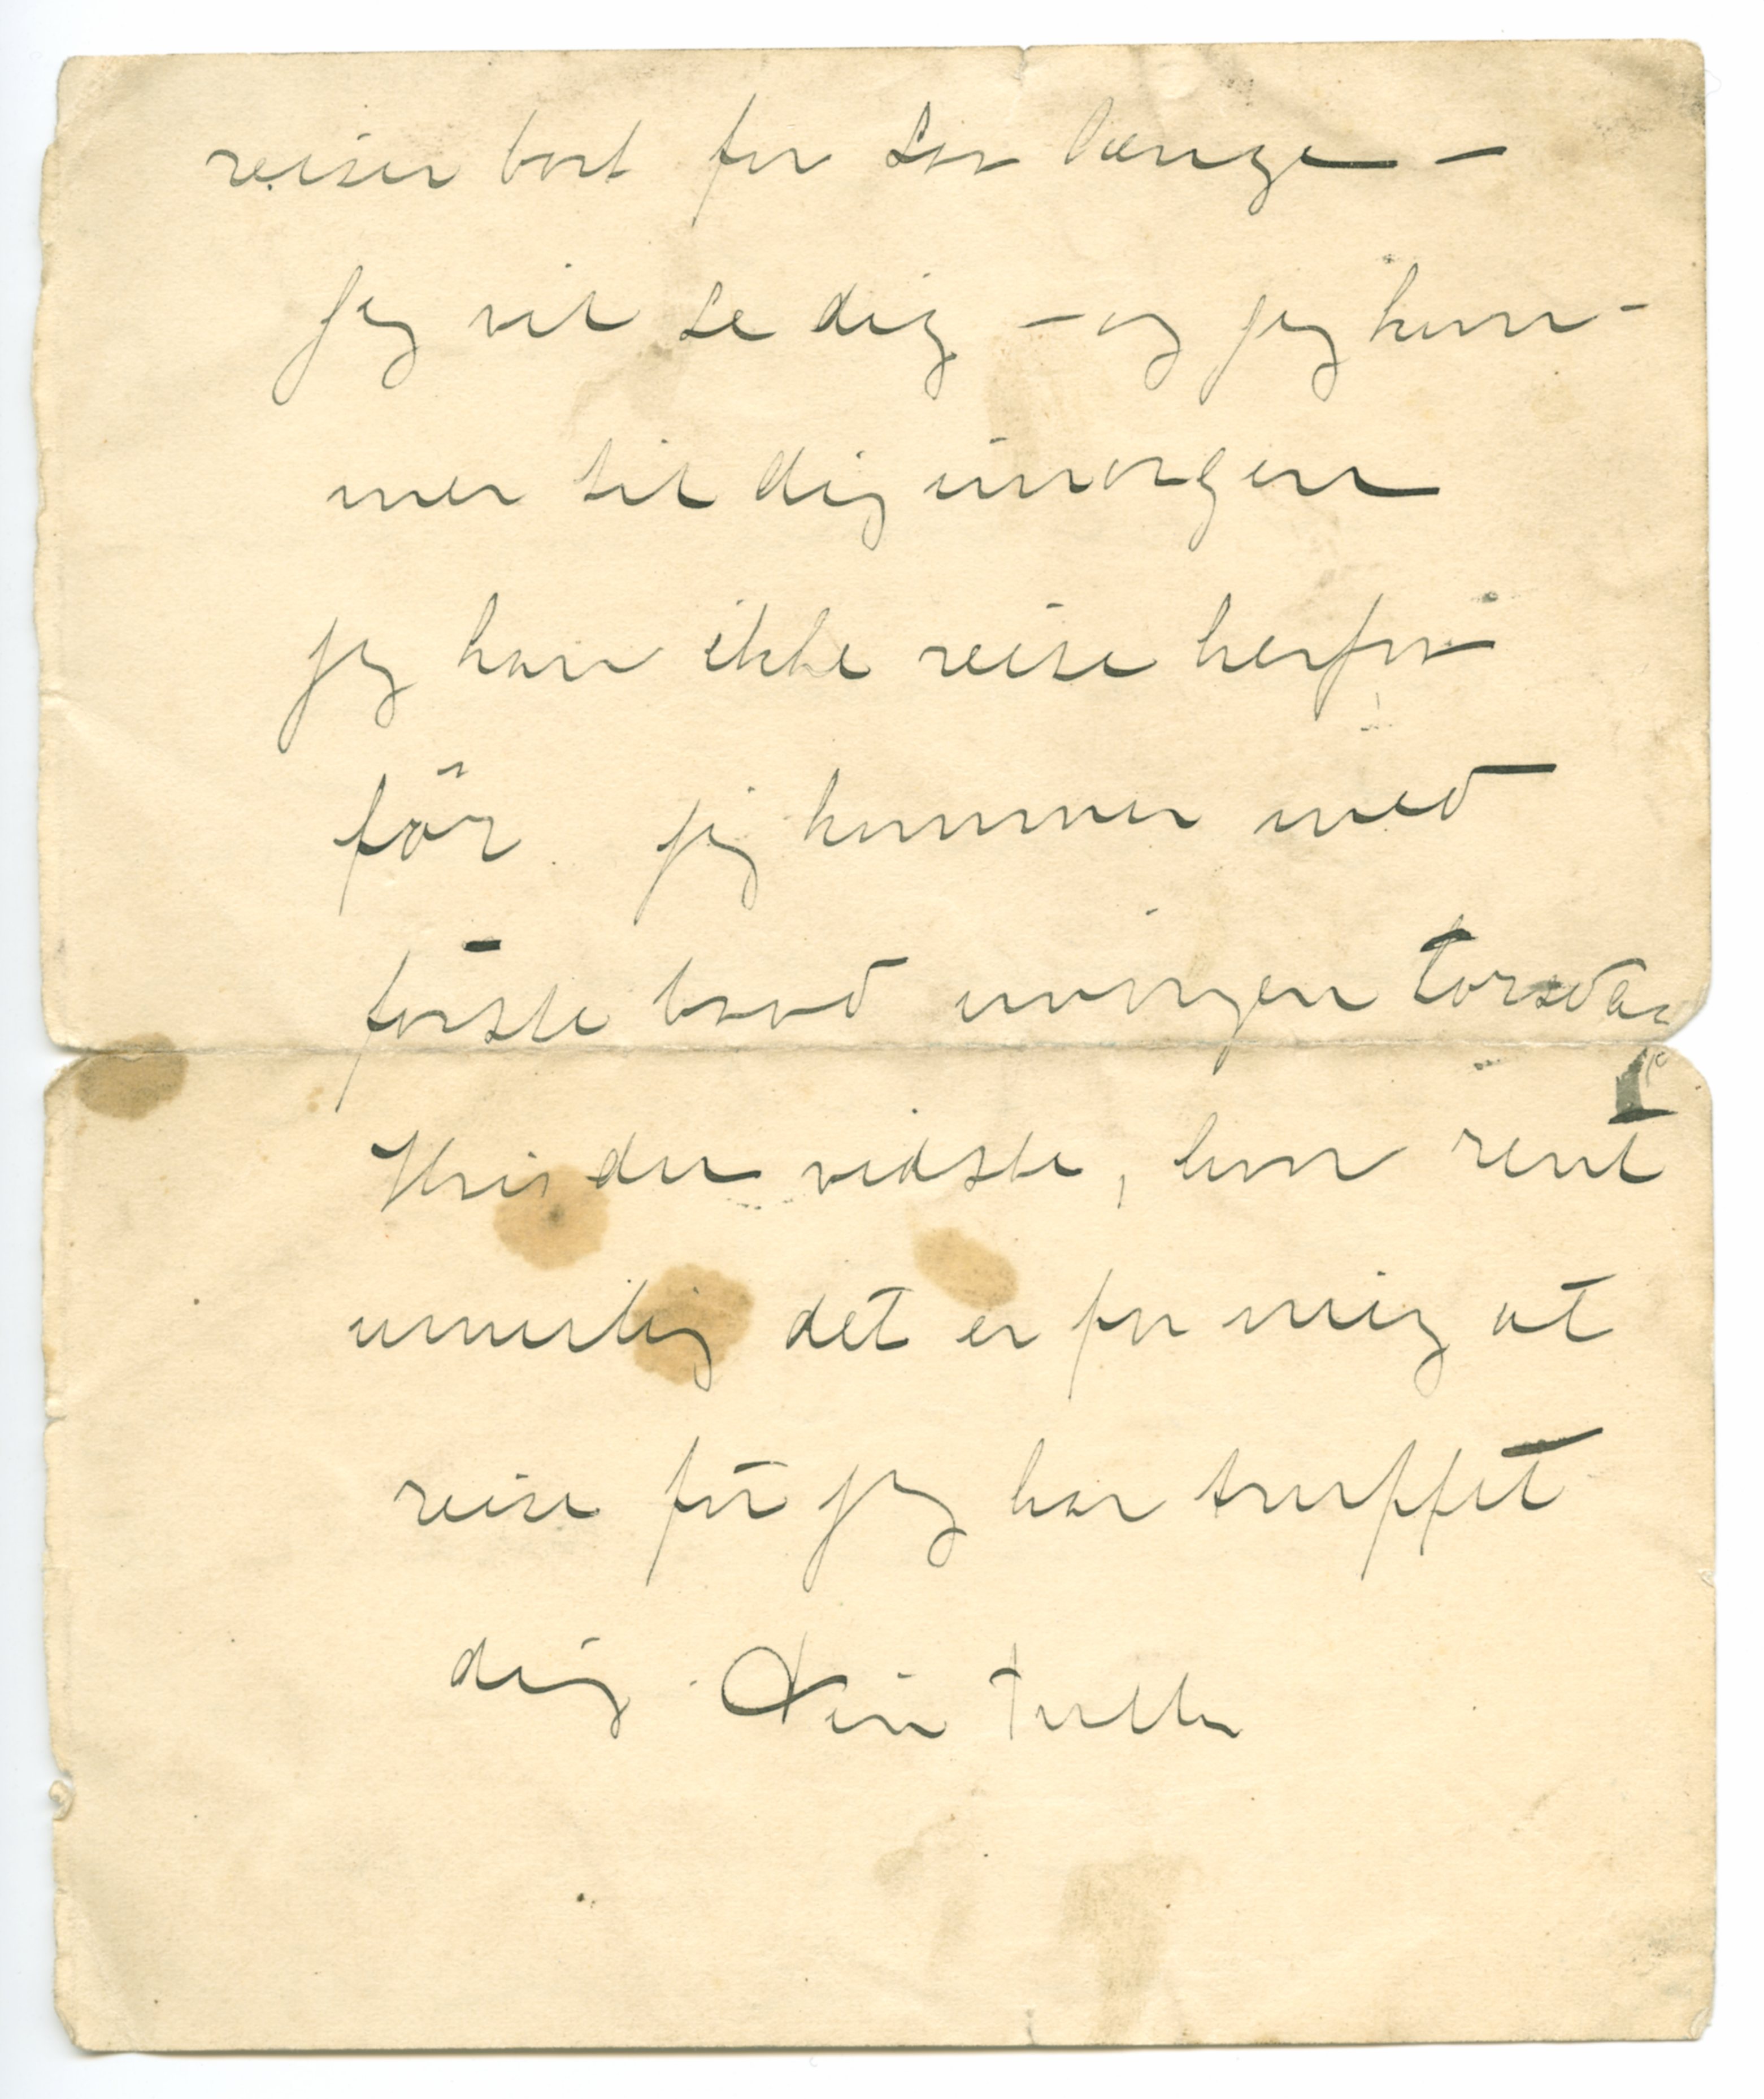 reiser bort for saa længe –
Jeg vil se dig – og jeg kom-
mer til dig imorgen
jeg kan ikke reise herfra
før jeg kommer med
første baad imorgen torsdag
Hvis du vidste, hvor rent
umulig det er for mig at
reise før jeg har truffet
dig. Din Tulla